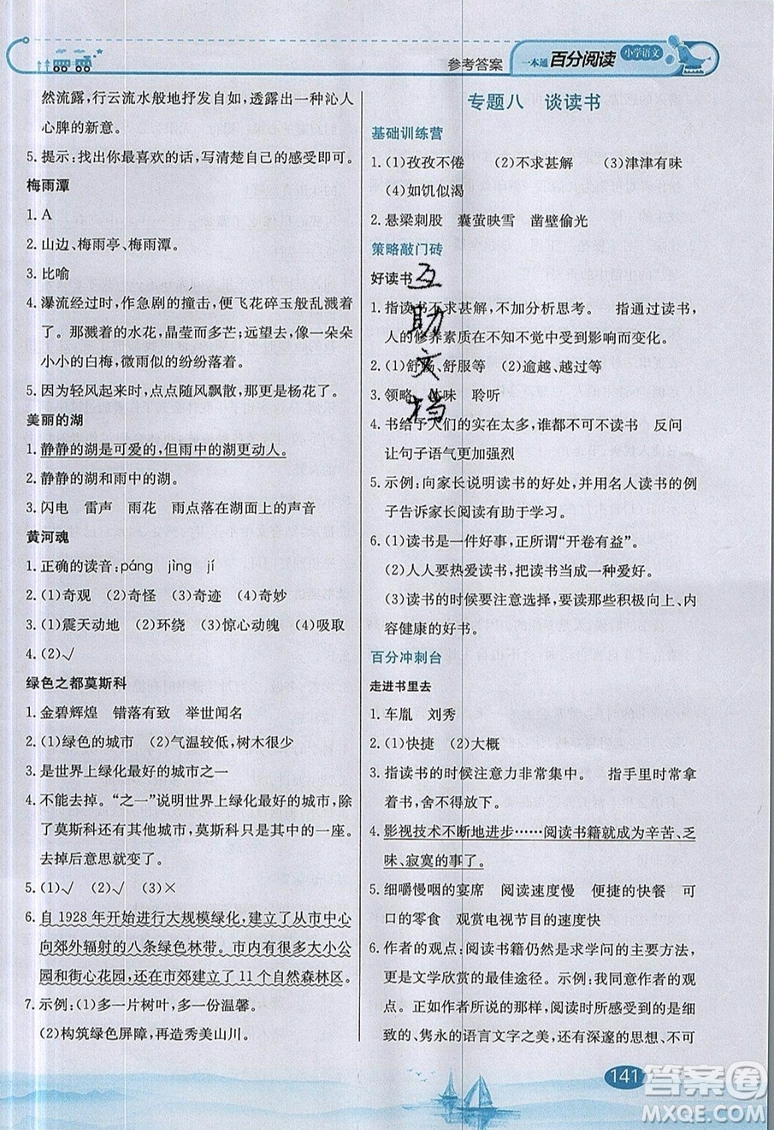 参考答案
一本通 百分阅读 小学语文
然流露，行云流水般地抒发自如，透露出一种沁人
心脾的新意。
5. 提示：找出你最喜欢的话，写清自己的感受即可。
梅雨潭
1. A
2. 山边、梅雨亭、梅雨潭。
3. 比喻
4. 瀑流经过时，作急剧的撞击，便飞花碎玉般乱溅着
了。那溅着的水花，晶莹而多芒；远望去，像一朵朵
小小的白梅，微雨似的纷纷落着。
5. 因为轻风起来时，点点随风飘散，那更是杨花了。
美丽的湖
1. 静静的湖是可爱的，但雨中的湖更动人。
2. 静静的湖和雨中的湖。
3. 闪电 雷声 雨花 雨点落在湖面上的声音
黄河魂
1. 正确的读音：páng jìng jí
2. (1)奇观 (2)奇怪 (3)奇迹 (4)奇妙
3. (1)震天动地 (2)环绕 (3)惊心动魄 (4)吸取
4. (2)√
绿色之都莫斯科
1. 金碧辉煌 错落有致 举世闻名
2. (1)绿色的城市 (2)气温较低，树木很少
3. 是世界上绿化最好的城市之一
4. 不能去掉。“之一”说明世界上绿化最好的城市，除
了莫斯科还有其他城市，莫斯科只是其中的一座。
去掉后意思就变了。
5. (1)√ (2)√ (3)×
6. 自 1928 年开始进行大规模绿化，建立了从市中心
向郊外辐射的八条绿色林带。市内有数以百计的小公
园和街心花园，还在市郊建立了 11 个自然森林区。
7. 示例：(1)多一片树叶，多一份温馨。
(2)构筑绿色屏障，再造秀美山川。
专题八 谈读书
基础训练营
1. (1)孜孜不倦 (2)不求甚解 (3)津津有味
(4)如饥似渴
2. 悬梁刺股 囊萤映雪 凿壁偷光
策略敲门砖
好读书
1. 指读书不求甚解，不加分析思考。 指通过读书，
人的修养素质在不知不觉中受到影响而变化。
2. (1)舒畅、舒服等 (2)逾越、越过等
3. 领略 体味 聆听
4. 书给予人们的实在太多，谁都不可不读书 反问
让句子语气更加强烈
5. 示例：向家长说明读书的好处，并用名人读书的例
子告诉家长阅读有助于学习。
6. (1)读书是一件好事，正所谓“开卷有益”。
(2)人人要热爱读书，把读书当成一种爱好。
(3)读书的时候要注意选择，要读那些积极向上、内
容健康的好书。
百分冲刺台
走进书里去
1. 车胤 刘秀
2. (1)快捷 (2)大概
3. 指读书的时候注意力非常集中。 指手里时时刻刻
拿着书。
4. 影视技术不断地进步……阅读书籍就成为辛苦、乏
味、寂寞的事了。
5. 细嚼慢咽的宴席 阅读速度慢 便捷的快餐 可
口的零食 观赏电视节目的速度快
6. 作者的观点：阅读书籍仍然是求学问的主要方法，
更是文学欣赏的主要途径。示例：我同意作者的观
点。正如作者所说的那样，阅读能让人们感受到细
致的、隽永的语言文字之美，还有深邃的思想、不可
互助文档
141
答案圈
MXQE.COM